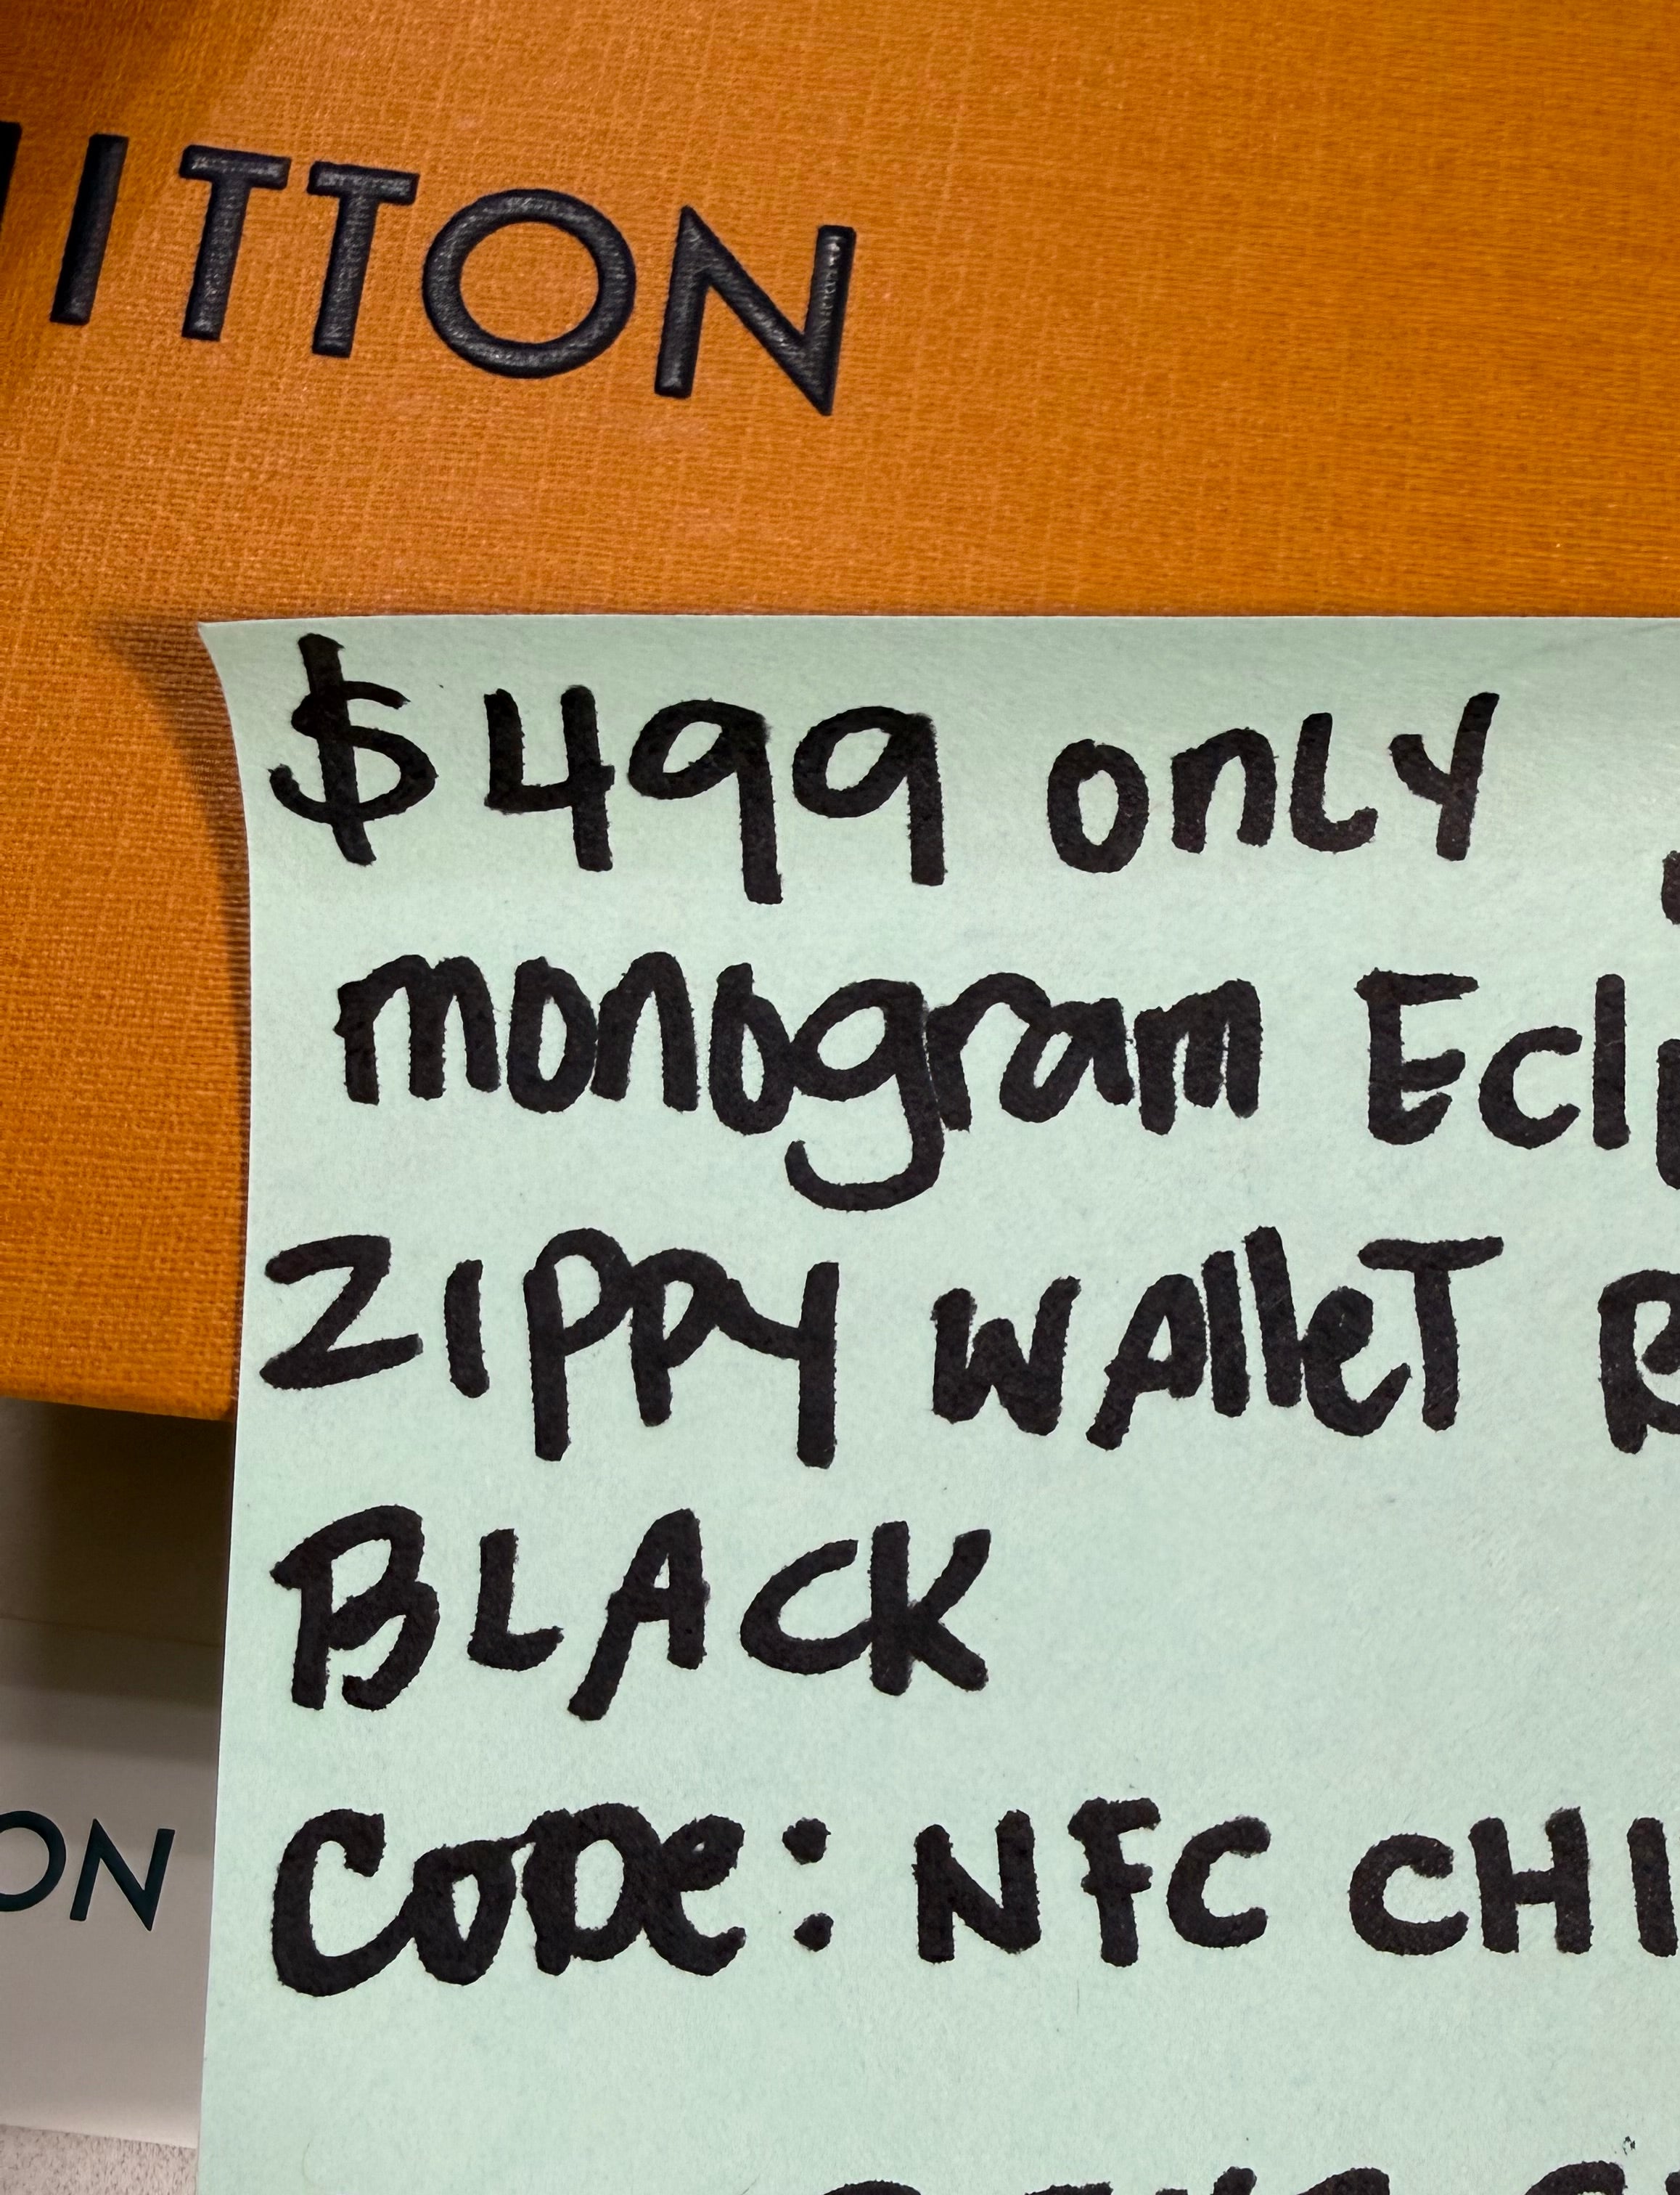 ITTON
$499 only
monogram Ecli
ZIPPY WAlleT
BLACK
CODe: NFC CHI
ON